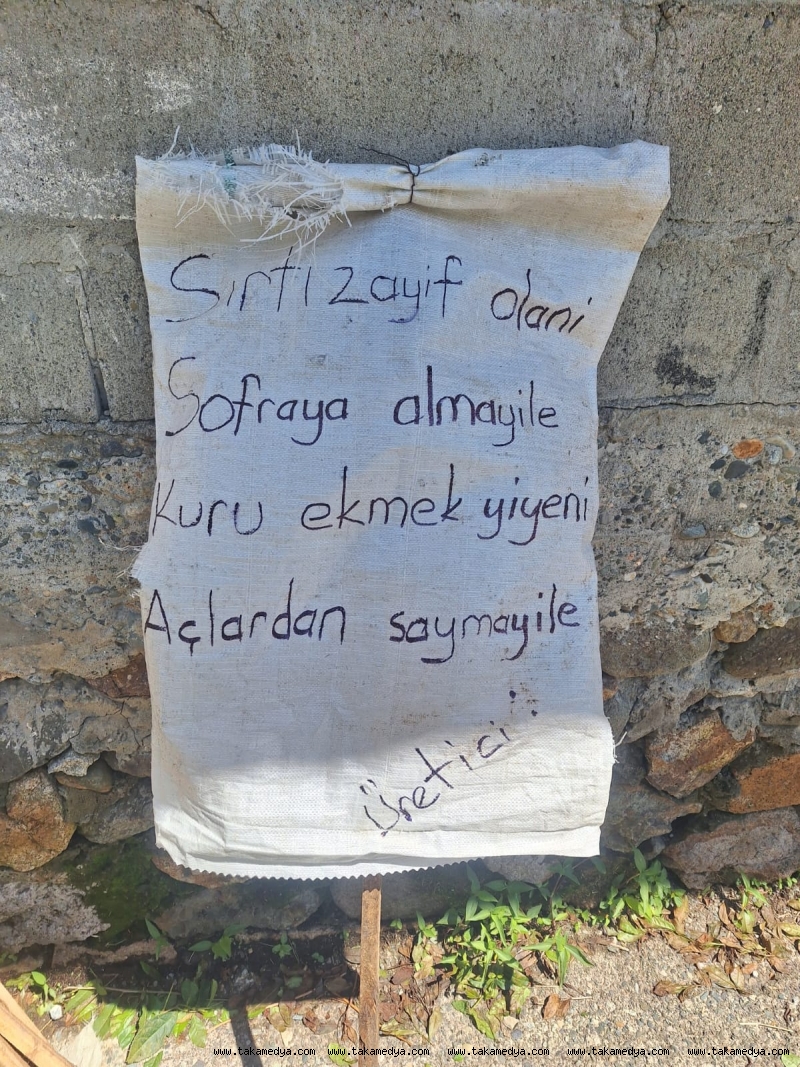 Sırtı zayif olani
Sofraya almayile
Kuru ekmek yiyeni
Açlardan saymayile
Üretici :
www.takamedya.com www.takamedya.com www.takamedya.com www.takamedya.com www.takamedya.com